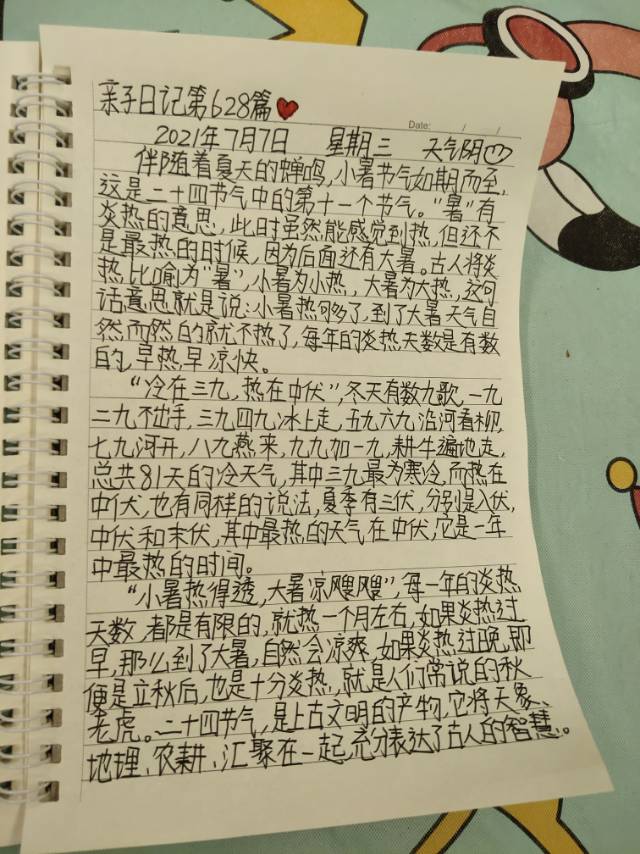 亲子日记第628篇
Date: / /
2021年7月7日 星期三 天气阴
伴随着夏天的蝉鸣,小暑节气如期而至,
这是二十四节气中的第十一个节气。"暑"有
炎热的意思,此时虽然能感觉到热,但还不
是最热的时候,因为后面还有大暑。古人将炎
热比喻为"暑",小暑为小热,大暑为大热,这句
话意思就是说:小暑热够了,到了大暑天气自
然而然的就不热了,每年的炎热天数是有数
的,早热早凉快。
"冷在三九,热在中伏",冬天有数九歌,一九
二九不出手,三九四九冰上走,五九六九沿河看柳,
七九河开,八九燕来,九九加一九,耕牛遍地走,
总共81天的冷天气,其中三九最为寒冷,而热在
中伏,也有同样的说法,夏季有三伏,分别是入伏,
中伏和末伏,其中最热的天气在中伏,它是一年
中最热的时间。
"小暑热得透,大暑凉飕飕",每一年的炎热
天数,都是有限的,就热一个月左右,如果炎热过
早,那么到了大暑,自然会凉爽,如果炎热过晚,即
便是立秋后,也是十分炎热,就是人们常说的秋
老虎。二十四节气,是上古文明的产物,它将天象、
地理、农耕、汇聚在一起,充分表达了古人的智慧。